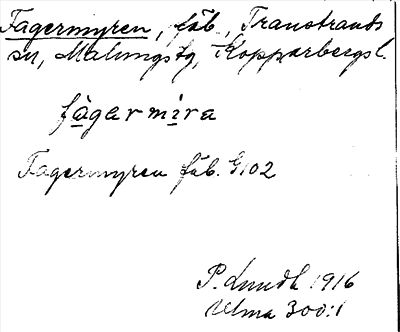 Fagermyren, fäb., Transtrands
sn, Malungs tg, Kopparbergs l.
fàgarmìra
Fagermyren fäb. G102
P. Lundh 1916
Ulma 300:1